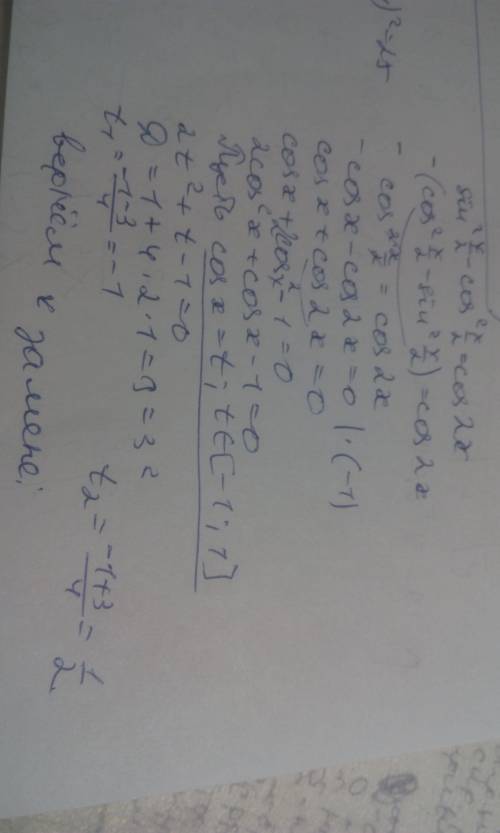 )² = 25
sin² x/2 - cos² x/2 = cos 2x
-(cos² x/2 - sin² x/2) = cos 2x
- cos 2x/2 = cos 2x
- cos x - cos 2x = 0 | · (-1)
cos x + cos 2x = 0
cos x + 2cos² x - 1 = 0
2cos² x + cos x - 1 = 0
Пусть cos x = t; t ∈ [-1; 1]
2t² + t - 1 = 0
D = 1 + 4 · 2 · 1 = 9 = 3²
t₁ = (-1-3)/4 = -1 t₂ = (-1+3)/4 = 1/2
вернём к замене: